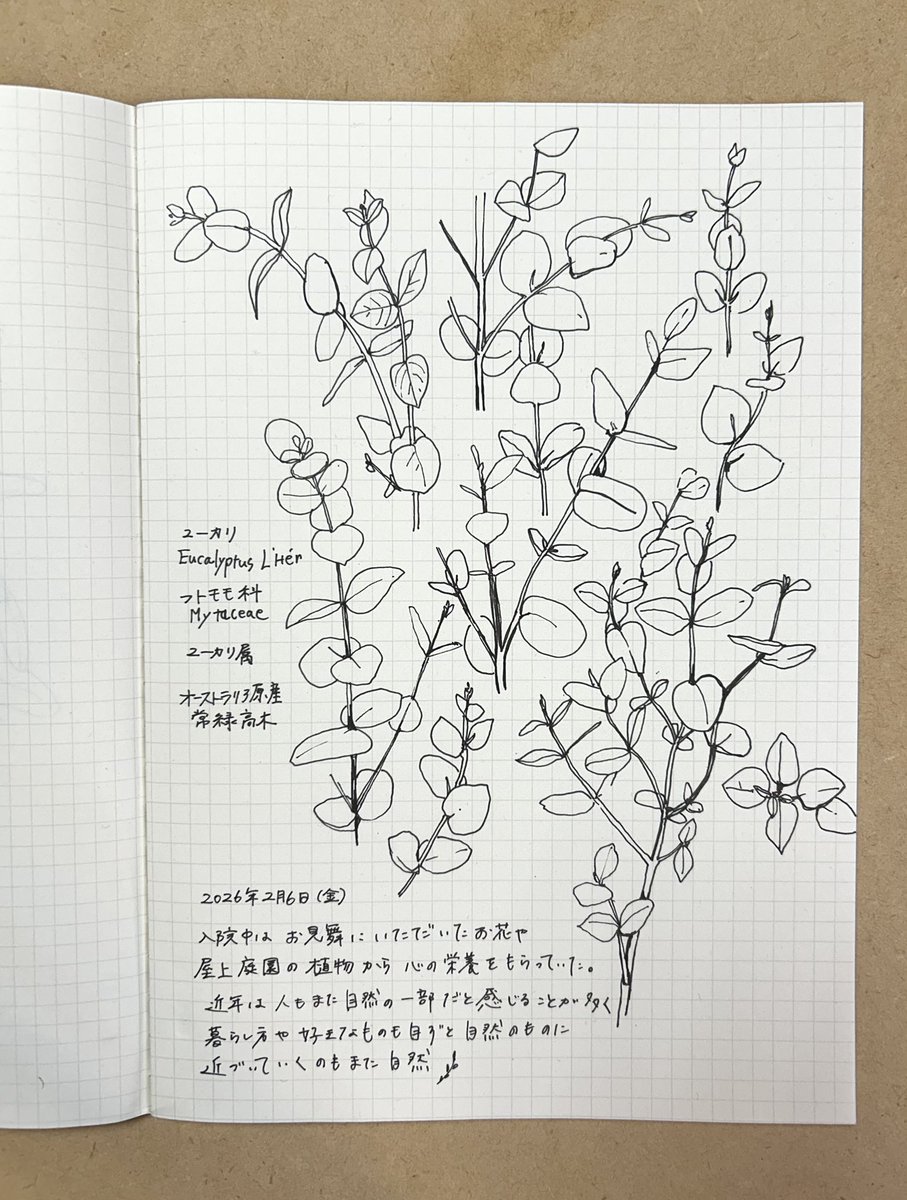 ユーカリ
Eucalyptus L'Hér
フトモモ科
Mytaceae
ユーカリ属
オーストラリア原産
常緑高木
2026年2月6日(金)
入院中は お見舞に いただいた お花や
屋上庭園の 植物から 心の栄養をもらっていた。
近年は 人もまた自然の一部だと感じることが多く
暮らし方や 好きなものも自ずと 自然のものに
近づいていくのもまた 自然